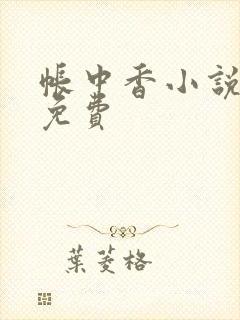 帳中香小說
免費
葉菱格